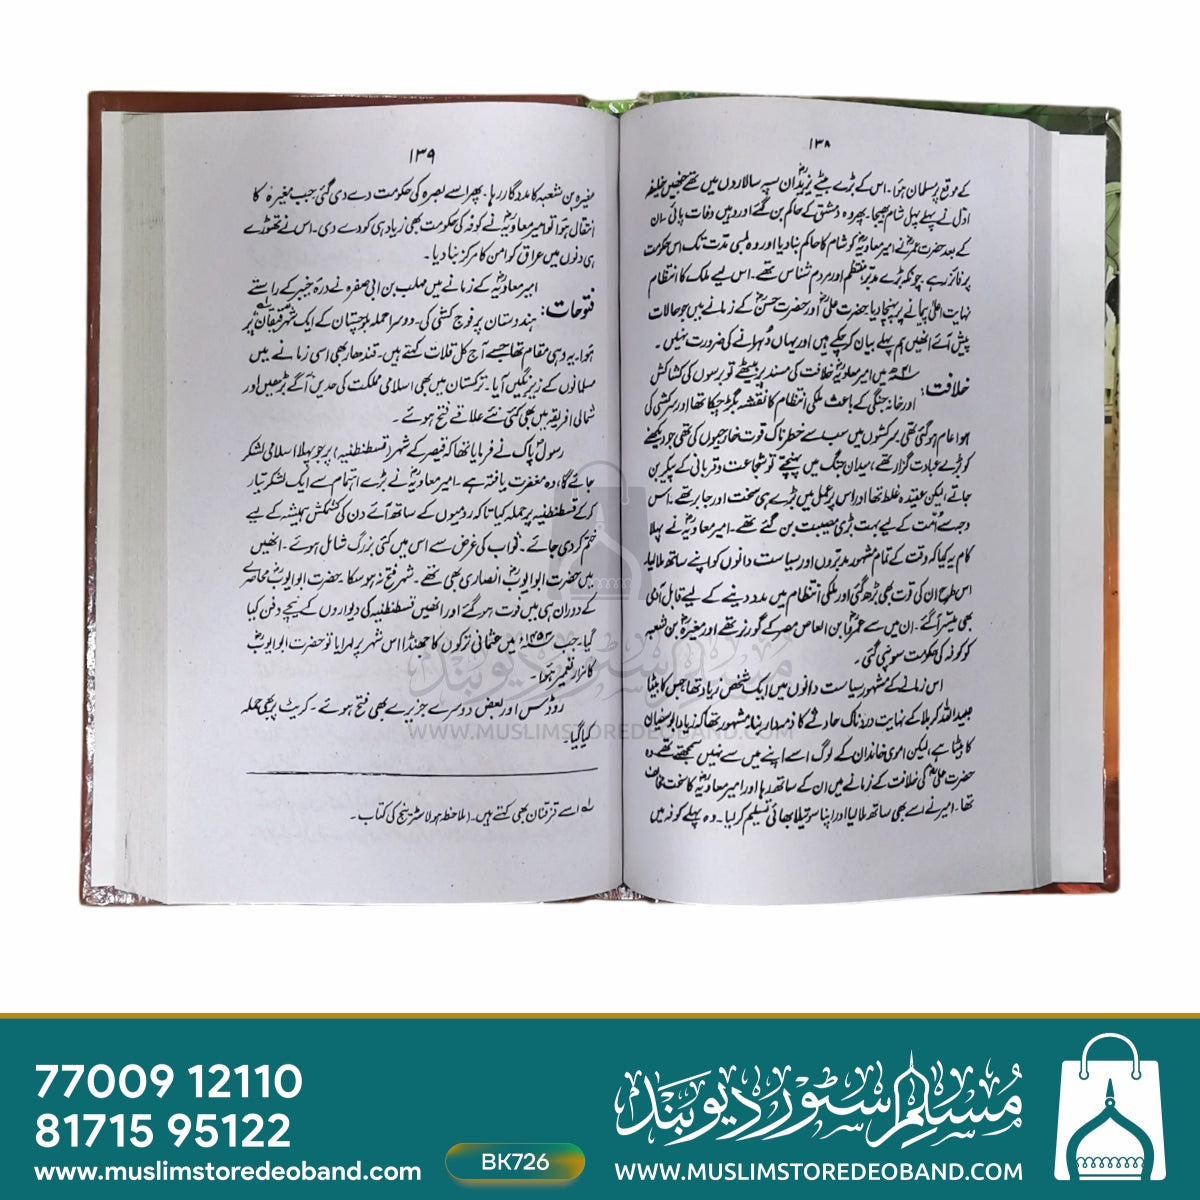 ۱۳۸
کے موقع پر مسلمان ہوا۔ اس کے بڑے بیٹے یزیدؓ ان سپہ سالاروں میں تھے جنھیں خلیفہ
اول نے پہلے پہل شام بھیجا۔ پھر وہ دمشق کے حاکم بن گئے اور وہیں وفات پائی۔ ان
کے بعد حضرت عمرؓ نے امیر معاویہؓ کو شام کا حاکم بنا دیا اور وہ لمبی مدت تک اس حکومت
پر فائز رہے، چونکہ بڑے مدبّر، منتظم اور مردم شناس تھے۔ اس لیے ملک کا انتظام
نہایت اعلیٰ پیمانے پر پہنچا دیا۔ حضرت علیؓ اور حضرت حسنؓ کے زمانے میں جو حالات
پیش آئے انھیں ہم پہلے بیان کر چکے ہیں اور یہاں دُہرانے کی ضرورت نہیں۔
خلافت: ۴۱ھ میں امیر معاویہؓ خلافت کی مسند پر بیٹھے تو برسوں کی کشاکش
اور خانہ جنگی کے باعث ملکی انتظام کا نقشہ بگڑ چکا تھا اور سرکشی کی
ہوا عام ہو گئی تھی۔ سرکشوں میں سب سے خطرناک قوت خارجیوں کی تھی جو دیکھنے
کو بڑے عبادت گزار تھے، میدان جنگ میں پہنچتے تو شجاعت و قربانی کے پیکر بن
جاتے، لیکن عقیدہ غلط تھا اور اس پر عمل میں بڑے ہی سخت اور جابر تھے۔ اس
وجہ سے اُمّت کے لیے بہت بڑی مصیبت بن گئے تھے۔ امیر معاویہؓ نے پہلا
کام یہ کیا کہ وقت کے تمام مشہور مدبّروں اور سیاست دانوں کو اپنے ساتھ ملا لیا۔
اس طرح ان کی قوت بھی بڑھ گئی اور ملکی انتظام میں مدد دینے کے لیے قابل آدمی
بھی میسّر آ گئے۔ ان میں سے عمروؓ بن العاص مصر کے گورنر تھے اور مغیرہؓ بن شعبہ
کو کوفہ کی حکومت سونپی گئی۔
اس زمانے کے مشہور سیاست دانوں میں ایک شخص زیاد تھا جس کا بیٹا
عبید اللہ کربلا کے نہایت دردناک حادثے کا ذمہ دار بنا۔ مشہور تھا کہ زیاد ابو سفیان
کا بیٹا ہے، لیکن اموی خاندان کے لوگ اسے اپنے میں سے نہیں سمجھتے تھے۔ وہ
حضرت علیؓ کی خلافت کے زمانے میں ان کے ساتھ رہا اور امیر معاویہؓ کا سخت مخالف
تھا۔ امیر نے اسے بھی ساتھ ملا لیا اور اپنا سوتیلا بھائی تسلیم کر لیا۔ وہ پہلے کوفہ میں
۱۳۹
مغیرہ بن شعبہ کا مددگار رہا۔ پھر اسے بصرہ کی حکومت دے دی گئی جب مغیرہؓ کا
انتقال ہوا تو امیر معاویہؓ نے کوفہ کی حکومت بھی زیاد ہی کو دے دی۔ اس نے تھوڑے
ہی دنوں میں عراق کو امن کا مرکز بنا دیا۔
فتوحات: امیر معاویہؓ کے زمانے میں مہلب بن ابی صفرہ نے درہ خیبر کے راستے
ہندوستان پر فوج کشی کی۔ دوسرا حملہ بلوچستان کے ایک شہر قیقان پر
ہوا۔ یہ وہی مقام تھا جسے آج کل قلات کہتے ہیں۔ قندھار بھی اسی زمانے میں
مسلمانوں کے زیر نگیں آیا۔ ترکستان میں بھی اسلامی مملکت کی حدیں آگے بڑھیں اور
شمالی افریقہ میں بھی کئی نئے علاقے فتح ہوئے۔
رسولؐ پاک نے فرمایا تھا کہ قیصر کے شہر (قسطنطنیہ) پر جو پہلا اسلامی لشکر
جائے گا، وہ مغفرت یافتہ ہے۔ امیر معاویہؓ نے بڑے اہتمام سے ایک لشکر تیار
کر کے قسطنطنیہ پر حملہ کیا تاکہ رومیوں کے ساتھ آئے دن کی کشمکش ہمیشہ کے لیے
ختم کر دی جائے۔ ثواب کی غرض سے اس میں کئی بزرگ شامل ہوئے۔ انھیں
میں حضرت ابو ایوبؓ انصاری بھی تھے۔ شہر فتح نہ ہو سکا۔ حضرت ابو ایوبؓ محاصرے
کے دوران ہی میں فوت ہو گئے اور انھیں قسطنطنیہ کی دیواروں کے نیچے دفن کیا
گیا۔ جب ۱۴۵۳ء میں عثمانی ترکوں کا جھنڈا اس شہر پر لہرایا تو حضرت ابو ایوبؓ
کا مزار تعمیر ہوا۔
روڈس اور بعض دوسرے جزیرے بھی فتح ہوئے۔ کریٹ پر بھی حملہ
کیا گیا۔
لے اسے قزقنان بھی کہتے ہیں۔ (ملاحظہ ہو لاسٹرینج کی کتاب۔
مسلم سٹور دیوبند
WWW.MUSLIMSTOREDEOBAND.COM
77009 12110
81715 95122
www.muslimstoredeoband.com
BK726
مسلم سٹور دیوبند
WWW.MUSLIMSTOREDEOBAND.COM